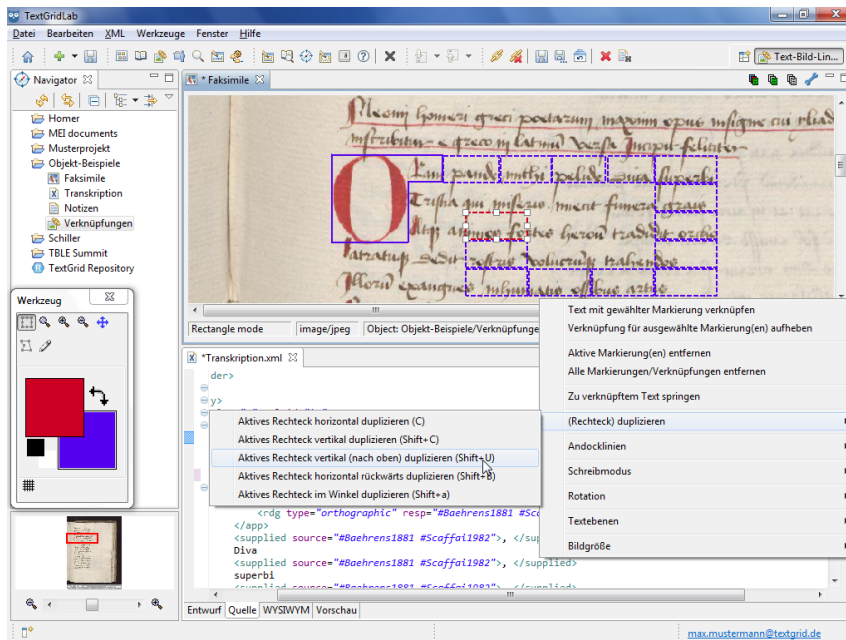 TextGridLab
Datei Bearbeiten XML Werkzeuge Fenster Hilfe
Text-Bild-Lin...
Navigator
Homer
MEI documents
Musterprojekt
Objekt-Beispiele
Faksimile
Transkription
Notizen
Verknüpfungen
Schiller
TBLE Summit
TextGrid Repository
Werkzeug
* Faksimile
Rectangle mode image/jpeg Object: Objekt-Beispiele/Verknüpfunge
Text mit gewählter Markierung verknüpfen
Verknüpfung für ausgewählte Markierung(en) aufheben
Aktive Markierung(en) entfernen
Alle Markierungen/Verknüpfungen entfernen
Zu verknüpftem Text springen
(Rechteck) duplizieren
Andocklinien
Schreibmodus
Rotation
Textebenen
Bildgröße
*Transkription.xml
der>
y>
Aktives Rechteck horizontal duplizieren (C)
Aktives Rechteck vertikal duplizieren (Shift+C)
Aktives Rechteck vertikal (nach oben) duplizieren (Shift+U)
Aktives Rechteck horizontal rückwärts duplizieren (Shift+B)
Aktives Rechteck im Winkel duplizieren (Shift+a)
<rdg type="orthographic" resp="#Baehrens1881 #Sca
</app>
<supplied source="#Baehrens1881 #Scaffai1982">, </sup
Diva
<supplied source="#Baehrens1881 #Scaffai1982">, </supplied>
superbi
<supplied source="#Baehrens1881 #Scaffai1982">, </supplied>
Entwurf Quelle WYSIWYM Vorschau
max.mustermann@textgrid.de